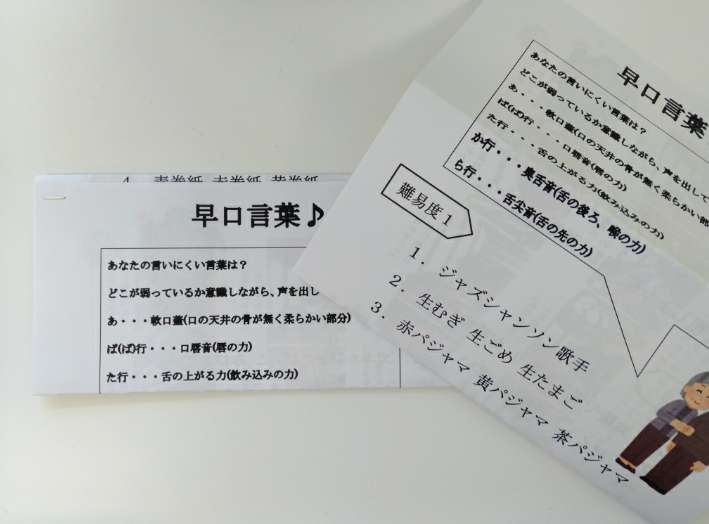 4． 青巻紙 赤巻紙 黄巻紙
早口言葉♪
あなたの言いにくい言葉は？
どこが弱っているか意識しながら、声を出し
あ・・・軟口蓋(口の天井の骨が無く柔らかい部分)
ぱ(ば)行・・・口唇音(唇の力)
た行・・・舌の上がる力(飲み込みの力)
早口言葉
あなたの言いにくい言葉は？
どこが弱っているか意識しながら、声を出して
あ・・・軟口蓋(口の天井の骨が無く柔らかい部
ぱ(ば)行・・・口唇音(唇の力)
た行・・・舌の上がる力(飲み込みの力)
か行・・・奥舌音(舌の後ろ、喉の力)
ら行・・・舌尖音(舌の先の力)
難易度１
1． ジャズシャンソン歌手
2． 生むぎ 生ごめ 生たまご
3． 赤パジャマ 黄パジャマ 茶パジャマ